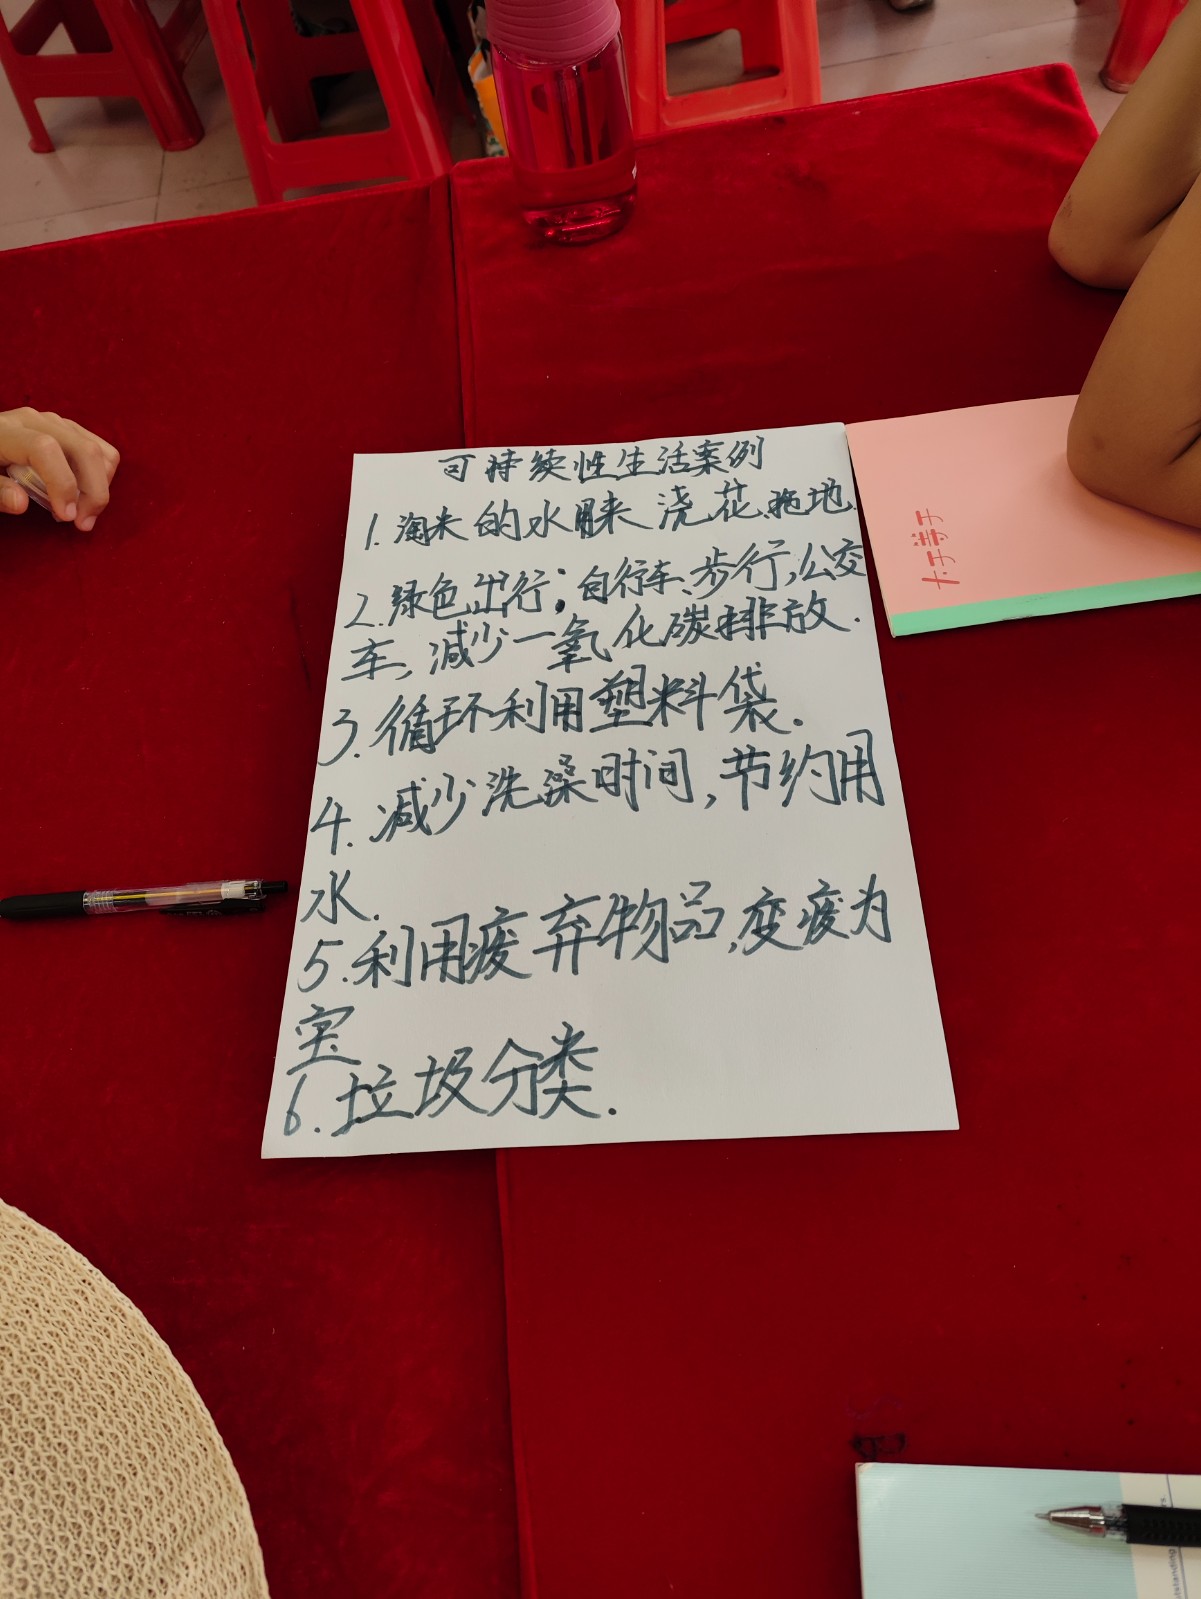 可持续性生活案例
1. 淘米的水用来 浇花、拖地.
2. 绿色出行；自行车、步行，公交
车，减少一氧化碳排放.
3. 循环利用塑料袋.
4. 减少洗澡时间，节约用
水.
5. 利用废弃物品，变废为
宝
6. 垃圾分类.